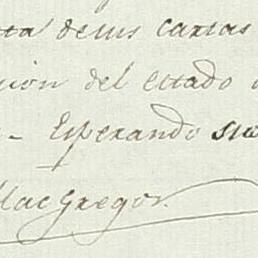 ta de sus cartas
cion del estado
- Esperando su
MacGregor.